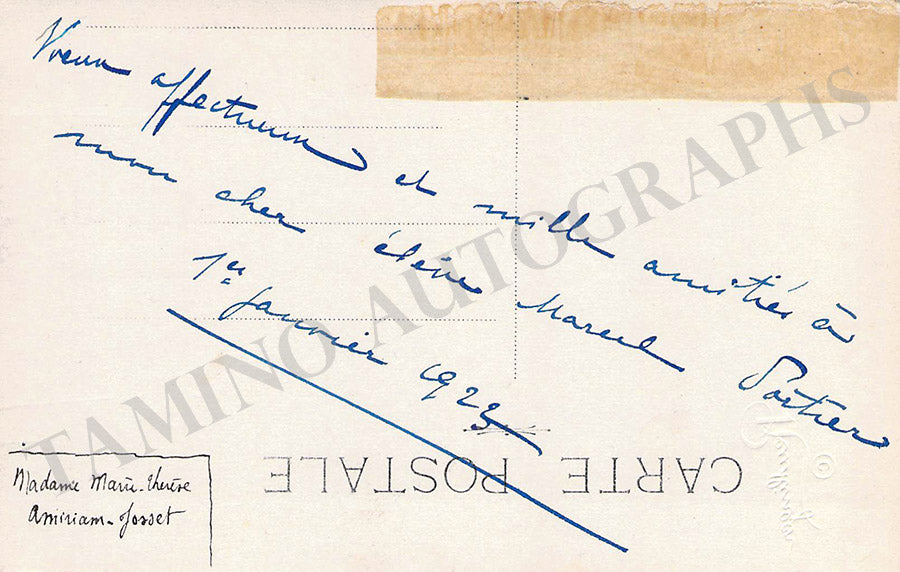 Vœux affectueux et mille amitiés à
mon cher élève Marcel Portier
1er Janvier 1923
CARTE POSTALE
Madame Marie-Thérèse
Amirian-Josset
TAMINO AUTOGRAPHS